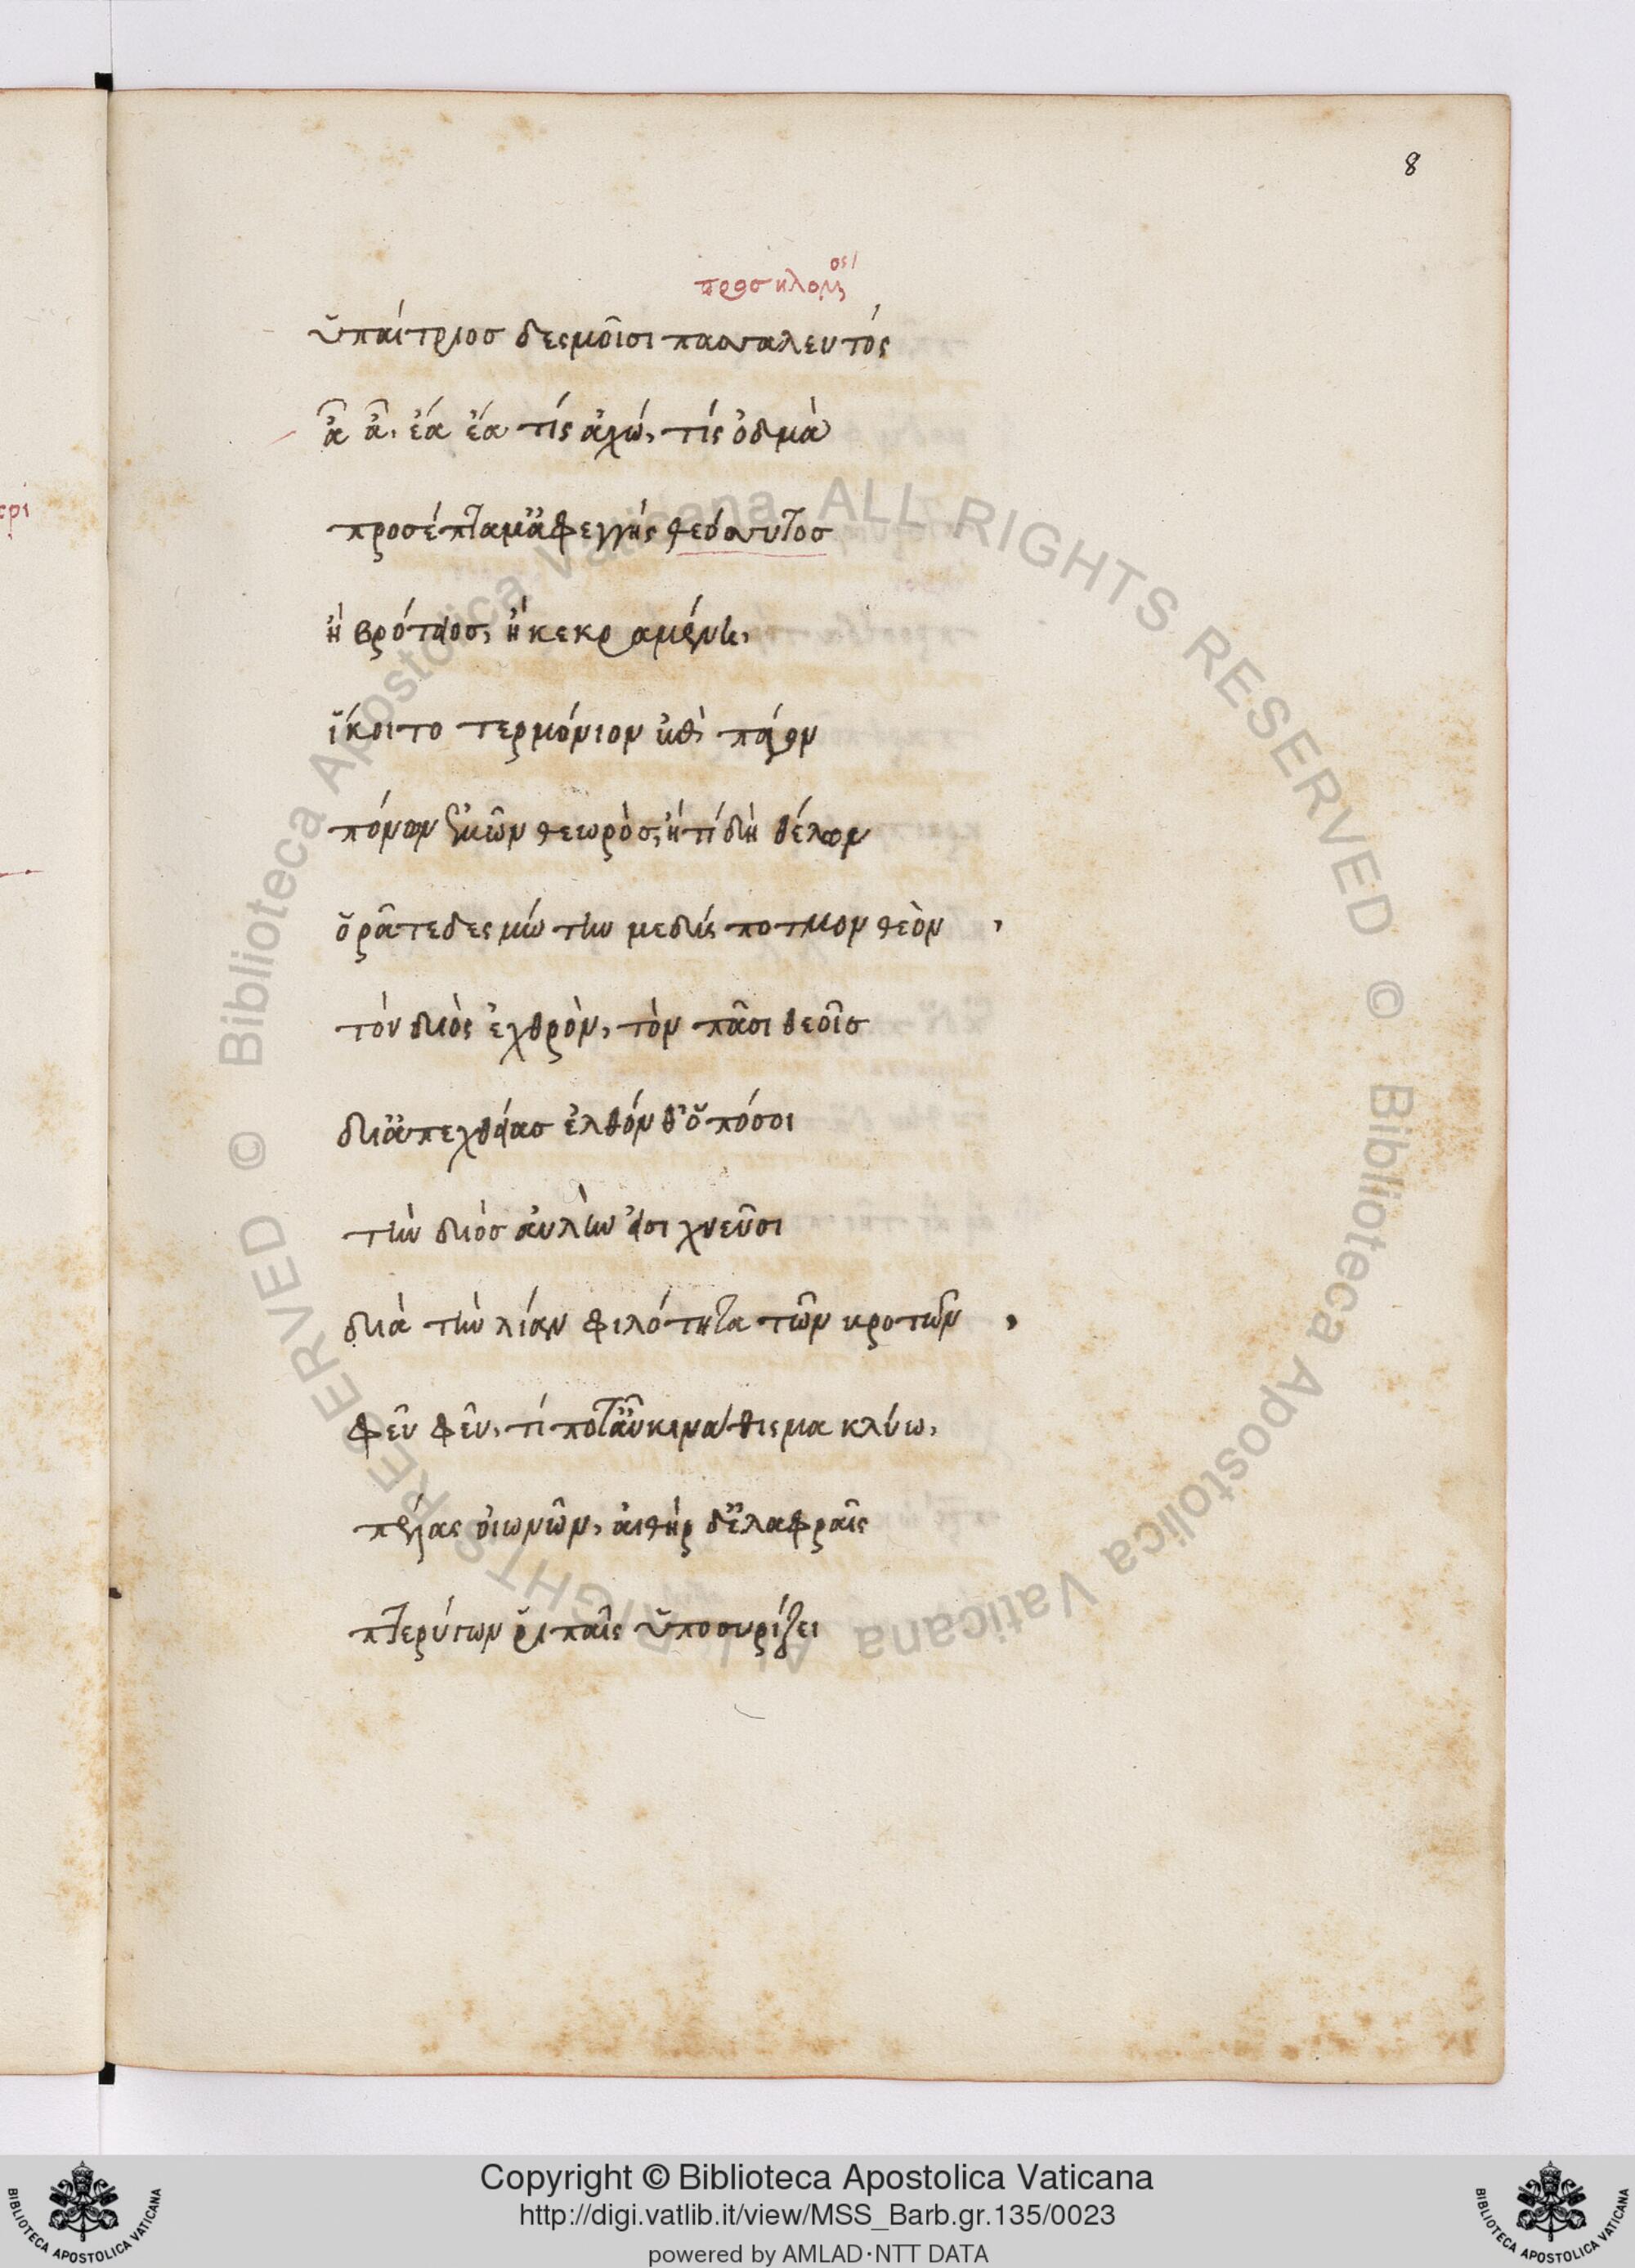 8
ὑπαίτριοσ δεςμοῖσι πασσαλευτός
ἆ ἆ, ἐά ἔα τίς ἀχώ, τίς ὀδμὰ
προσέπταμ' ἀφεγγής θεόσυτοσ
ἢ βρότειοσ, ἢ κεκραμένη,
ἵκοιτο τερμόνιον πάγον
πόνων ἐμῶν θεωρὸσ, ἢ τί δὴ θέλων
ὁρᾶτε δεςμώτην με δύςποτμον θεὸν ,
τόν διὸς ἐχθρὸν, τὸν πᾶσι θεοῖσ
δι' ἀπεχθείασ ἐλθόνθ' ὁπόσοι
τὴν διόσ ἀυλὴν εἰσιχνεῦσι
διὰ τὴν λίαν φιλότητα τῶν βροτῶν ,
φεῦ φεῦ, τί ποτ' ἀῦ κιναθιςμα κλύω,
πέλας ὀιωνῶν, ἀιθήρ δ' ἐλαφραῖς
πτερύγων ῥιπαῖς ὑποσυρίζει
Copyright © Biblioteca Apostolica Vaticana
http://digi.vatlib.it/view/MSS_Barb.gr.135/0023
powered by AMLAD·NTT DATA
BIBLIOTECA APOSTOLICA VATICANA
BIBLIOTECA APOSTOLICA VATICANA
© Biblioteca Apostolica Vaticana ALL RIGHTS RESERVED © Biblioteca Apostolica Vaticana ALL RIGHTS RESERVED